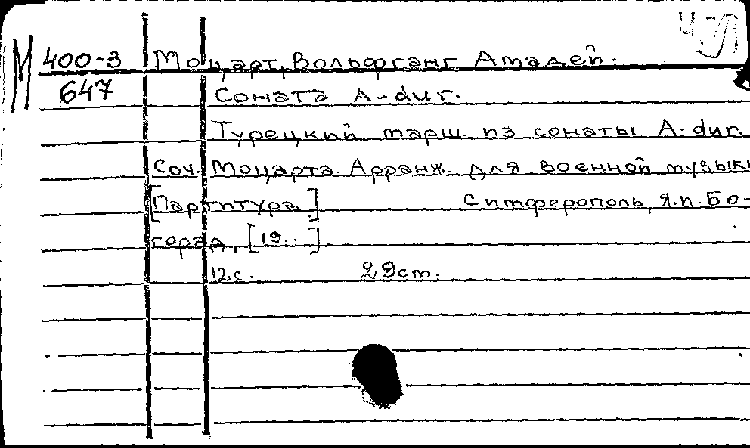 М 400-3 Моцарт, Вольфганг Амадей.
647 Соната A-dur.
Турецкий марш из сонаты A-dur.
Соч. Моцарта Арранж. для военной музыки
[Партитура] Симферополь, Я.П. Бо-
город, [19.. ].
12 с. 29 cm.